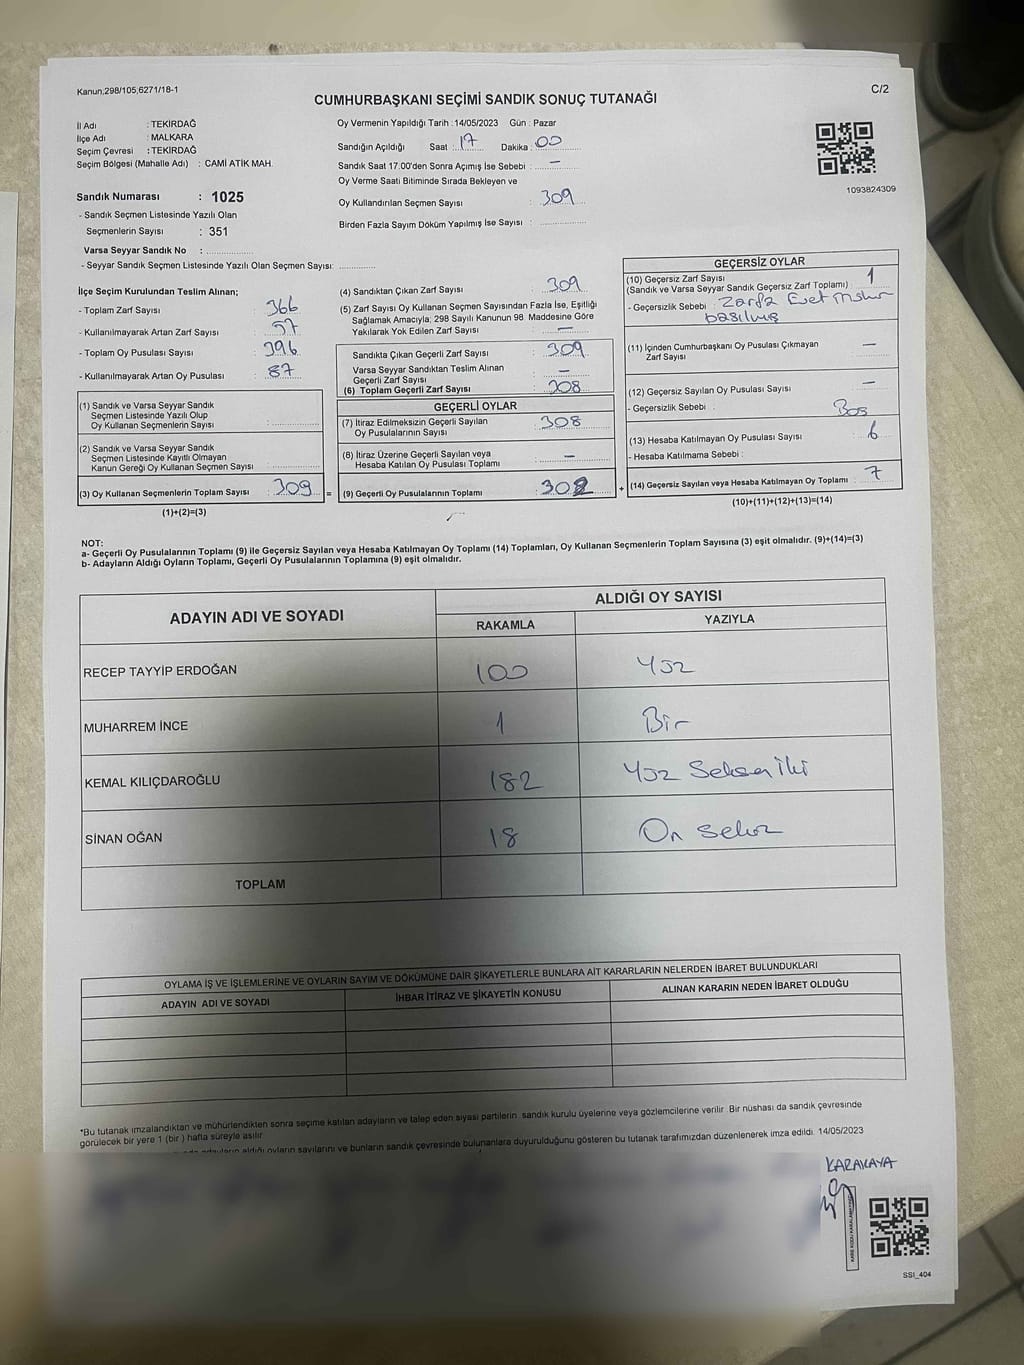 Kanun,298/105,6271/18-1
C/2
CUMHURBAŞKANI SEÇİMİ SANDIK SONUÇ TUTANAĞI
İl Adı : TEKİRDAĞ
İlçe Adı : MALKARA
Seçim Çevresi : TEKİRDAĞ
Seçim Bölgesi (Mahalle Adı) : CAMİ ATİK MAH.
Sandık Numarası : 1025
- Sandık Seçmen Listesinde Yazılı Olan
Seçmenlerin Sayısı : 351
Varsa Seyyar Sandık No :
- Seyyar Sandık Seçmen Listesinde Yazılı Olan Seçmen Sayısı:
Oy Vermenin Yapıldığı Tarih : 14/05/2023 Gün : Pazar
Sandığın Açıldığı Saat : 17 Dakika : 00
Sandık Saat 17:00'den Sonra Açımış İse Sebebi : —
Oy Verme Saati Bitiminde Sırada Bekleyen ve
Oy Kullandırılan Seçmen Sayısı : 309
Birden Fazla Sayım Döküm Yapılmış İse Sayısı :
1093824309
İlçe Seçim Kurulundan Teslim Alınan;
- Toplam Zarf Sayısı : 366
- Kullanılmayarak Artan Zarf Sayısı : 57
- Toplam Oy Pusulası Sayısı : 396
- Kullanılmayarak Artan Oy Pusulası : 87
(1) Sandık ve Varsa Seyyar Sandık
Seçmen Listesinde Yazılı Olup
Oy Kullanan Seçmenlerin Sayısı :
(2) Sandık ve Varsa Seyyar Sandık
Seçmen Listesinde Kayıtlı Olmayan
Kanun Gereği Oy Kullanan Seçmen Sayısı :
(3) Oy Kullanan Seçmenlerin Toplam Sayısı : 309 =
(1)+(2)=(3)
(4) Sandıktan Çıkan Zarf Sayısı : 309
(5) Zarf Sayısı Oy Kullanan Seçmen Sayısından Fazla İse, Eşitliği
Sağlamak Amacıyla; 298 Sayılı Kanunun 98. Maddesine Göre
Yakılarak Yok Edilen Zarf Sayısı : —
Sandıkta Çıkan Geçerli Zarf Sayısı : 309
Varsa Seyyar Sandıktan Teslim Alınan
Geçerli Zarf Sayısı : —
(6) Toplam Geçerli Zarf Sayısı : 308
GEÇERLİ OYLAR
(7) İtiraz Edilmeksizin Geçerli Sayılan
Oy Pusulalarının Sayısı : 308
(8) İtiraz Üzerine Geçerli Sayılan veya
Hesaba Katılan Oy Pusulası Toplamı : —
(9) Geçerli Oy Pusulalarının Toplamı : 302 +
GEÇERSİZ OYLAR
(10) Geçersiz Zarf Sayısı
(Sandık ve Varsa Seyyar Sandık Geçersiz Zarf Toplamı) : 1
- Geçersizlik Sebebi : Zarfa Evet Mührü
basılmış
(11) İçinden Cumhurbaşkanı Oy Pusulası Çıkmayan
Zarf Sayısı : —
(12) Geçersiz Sayılan Oy Pusulası Sayısı : —
- Geçersizlik Sebebi : Boş
(13) Hesaba Katılmayan Oy Pusulası Sayısı : 6
- Hesaba Katılmama Sebebi :
(14) Geçersiz Sayılan veya Hesaba Katılmayan Oy Toplamı : 7
(10)+(11)+(12)+(13)=(14)
NOT:
a- Geçerli Oy Pusulalarının Toplamı (9) ile Geçersiz Sayılan veya Hesaba Katılmayan Oy Toplamı (14) Toplamları, Oy Kullanan Seçmenlerin Toplam Sayısına (3) eşit olmalıdır. (9)+(14)=(3)
b- Adayların Aldığı Oyların Toplamı, Geçerli Oy Pusulalarının Toplamına (9) eşit olmalıdır.
ADAYIN ADI VE SOYADI
ALDIĞI OY SAYISI
RAKAMLA YAZIYLA
RECEP TAYYİP ERDOĞAN 100 Yüz
MUHARREM İNCE 1 Bir
KEMAL KILIÇDAROĞLU 182 Yüz Seksen İki
SİNAN OĞAN 18 On Sekiz
TOPLAM
OYLAMA İŞ VE İŞLEMLERİNE VE OYLARIN SAYIM VE DÖKÜMÜNE DAİR ŞİKAYETLERLE BUNLARA AİT KARARLARIN NELERDEN İBARET BULUNDUKLARI
ADAYIN ADI VE SOYADI İHBAR İTİRAZ VE ŞİKAYETİN KONUSU ALINAN KARARIN NEDEN İBARET OLDUĞU
*Bu tutanak imzalandıktan ve mühürlendikten sonra seçime katılan adayların ve talep eden siyasi partilerin sandık kurulu üyelerine veya gözlemcilerine verilir. Bir nüshası da sandık çevresinde
görülecek bir yere 1 (bir) hafta süreyle asılır.
adayların aldığı oyların sayılarını ve bunların sandık çevresinde bulunanlara duyurulduğunu gösteren bu tutanak tarafımızdan düzenlenerek imza edildi. 14/05/2023
KARAKAYA
SSI_404